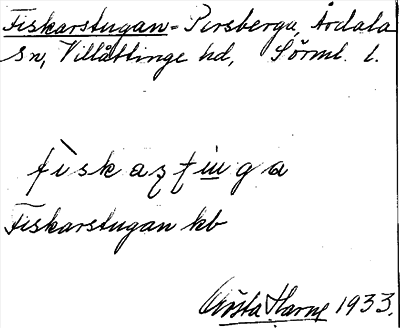 Fiskarstugan - Persberga, Årdala
sn, Villåttinge hd, Sörml. l.
fiskaʂtuga
Fiskarstugan kb
Gösta Harne 1933.